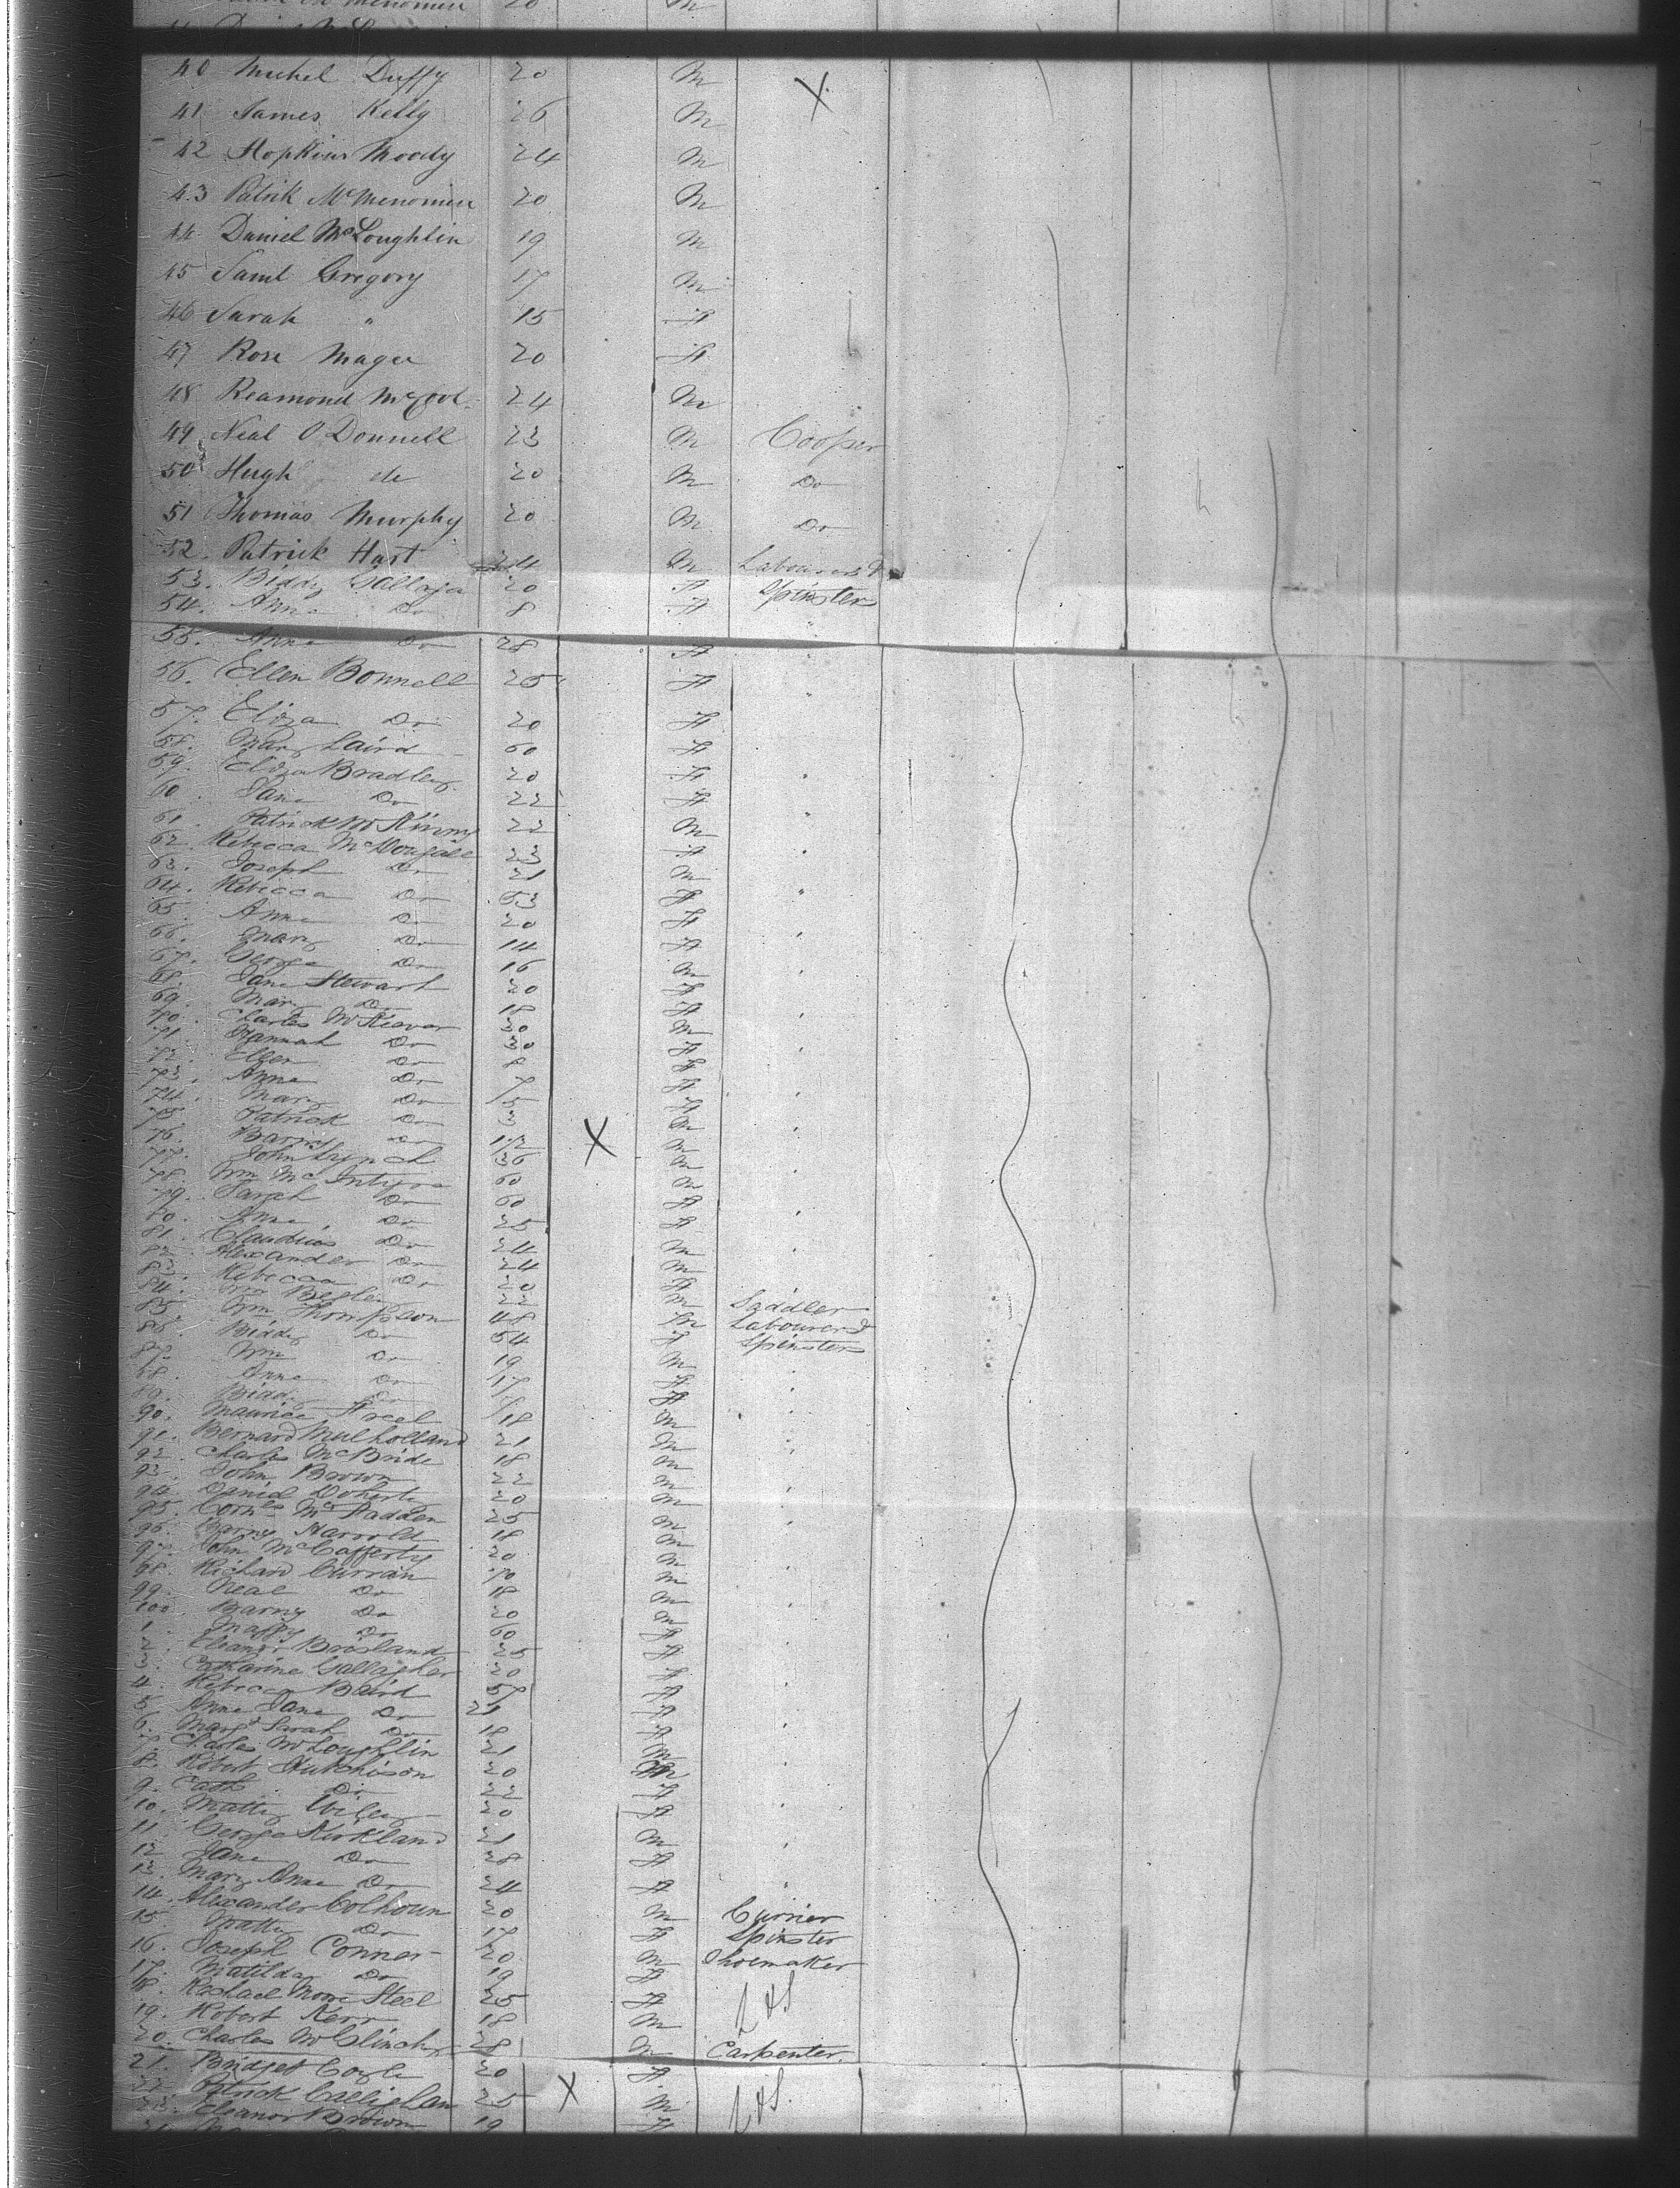 40 Michel Duffy 20 M
41 James Kelly 26 M
42 Hopkins Moody 24 M
43 Patrik McMenomin 20 M
44 Daniel McLoughlin 19 M
45 Saml Gregory 17 M
46 Sarah " 15 F
47 Rose Magee 20 F
48 Reamond McCool 24 M
49 Neal O Donnell 23 M Cooper
50 Hugh do 20 M Do
51 Thomas Murphy 20 M Do
52. Patrick Hart 24 M Labourers &
53. Biddy Gallaga 20 F Spinsters
54. Anne Do 8 F "
55. Anne Do 28 F "
56. Ellen Bonnell 25 F "
57. Eliza Do 20 F
58. Mary Laird 60 F
59. Eliza Bradley 20 F "
60. Jane Do 22 F
61. Patrick McKinny 22 M "
62. Rebecca McDougall 23 F "
63. Joseph Do 21 M
64. Rebecca Do 63 F "
65. Anne Do 20 F
66. Mary Do 14 F "
67. George Do 16 M "
68. Jane Stewart 20 F
69. Mary Do 18 F "
70. Charles McKeaver 30 M
71. Hannah Do 30 F "
72. Ellen Do 8 F
73. Anne Do 7 F "
74. Mary Do 5 F
75. Patrick Do 3 M "
76. Barney Do 1/2 M
77. John Lynch 36 M "
78. Wm McIntyre 60 M
79. Sarah Do 60 F "
80. Anne Do 25 F
81. Claudius Do 24 M "
82. Alexander Do 24 M
83. Rebecca Do 20 F
84. Wm 22 M Saddler
85. Wm Thompson 48 M Labourers &
86. Biddy Do 54 F Spinsters
87. Wm Do 19 M
88. Anne Do 17 F "
89. Biddy Do F "
90. Maurice Freel 18 M "
91. Bernard Mulholland 21 M "
92. Charles McBride 18 M
93. John Brown 22 M "
94. Daniel Doherty 20 M
95. Corns McFadden 25 M "
96. Barny Harrold 18 M
97. John McCafferty 20 M "
98. Richard Curran 70 M
99. Neal Do 18 M "
100. Barny Do 20 M
1. Do 60 F "
2. Eleanor Brosland 25 F
3. Catharine Gallagher 20 F "
4. Rebecca Baird 57 F
5. Anne Jane Do 21 F "
6. Margt Sarah Do 18 F
7. Charles McLoughlin 21 M "
8. Robert Hutchison 20 M
9. Cath Do 22 F
10. Matty Wiley 20 F "
11. George Kirkland 21 M "
12. Jane Do 28 F
13. Mary Anne Do 24 F "
14. Alexander Colhoun 20 M Currier
15. Matty Do 17 F Spinster
16. Joseph Conner 20 M Shoemaker
17. Matilda Do 19 F
18. Rachael Steel 25 F L & S
19. Robert Kerr 18 M
20. Charles McClinchy 28 M Carpenter.
21. Bridget Coyle 20 F
22. Patrick Callighan 25 M L & S.
23. Eleanor Brown 19 F